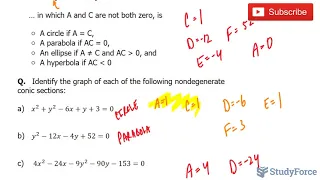 SUBSCRIBE
… in which A and C are not both zero, is
C=1
D=-12
F=52
E=-4
A=0
○ A circle if A = C,
○ A parabola if AC = 0,
○ An ellipse if A ≠ C and AC > 0, and
○ A hyperbola if AC < 0
Q. Identify the graph of each of the following nondegenerate
conic sections:
a) x² + y² − 6x + y + 3 = 0 CIRCLE A=1 C=1 D=-6 E=1
F=3
b) y² − 12x − 4y + 52 = 0 PARABOLA
c) 4x² − 24x − 9y² − 90y − 153 = 0 A=4 D=-24
StudyForce